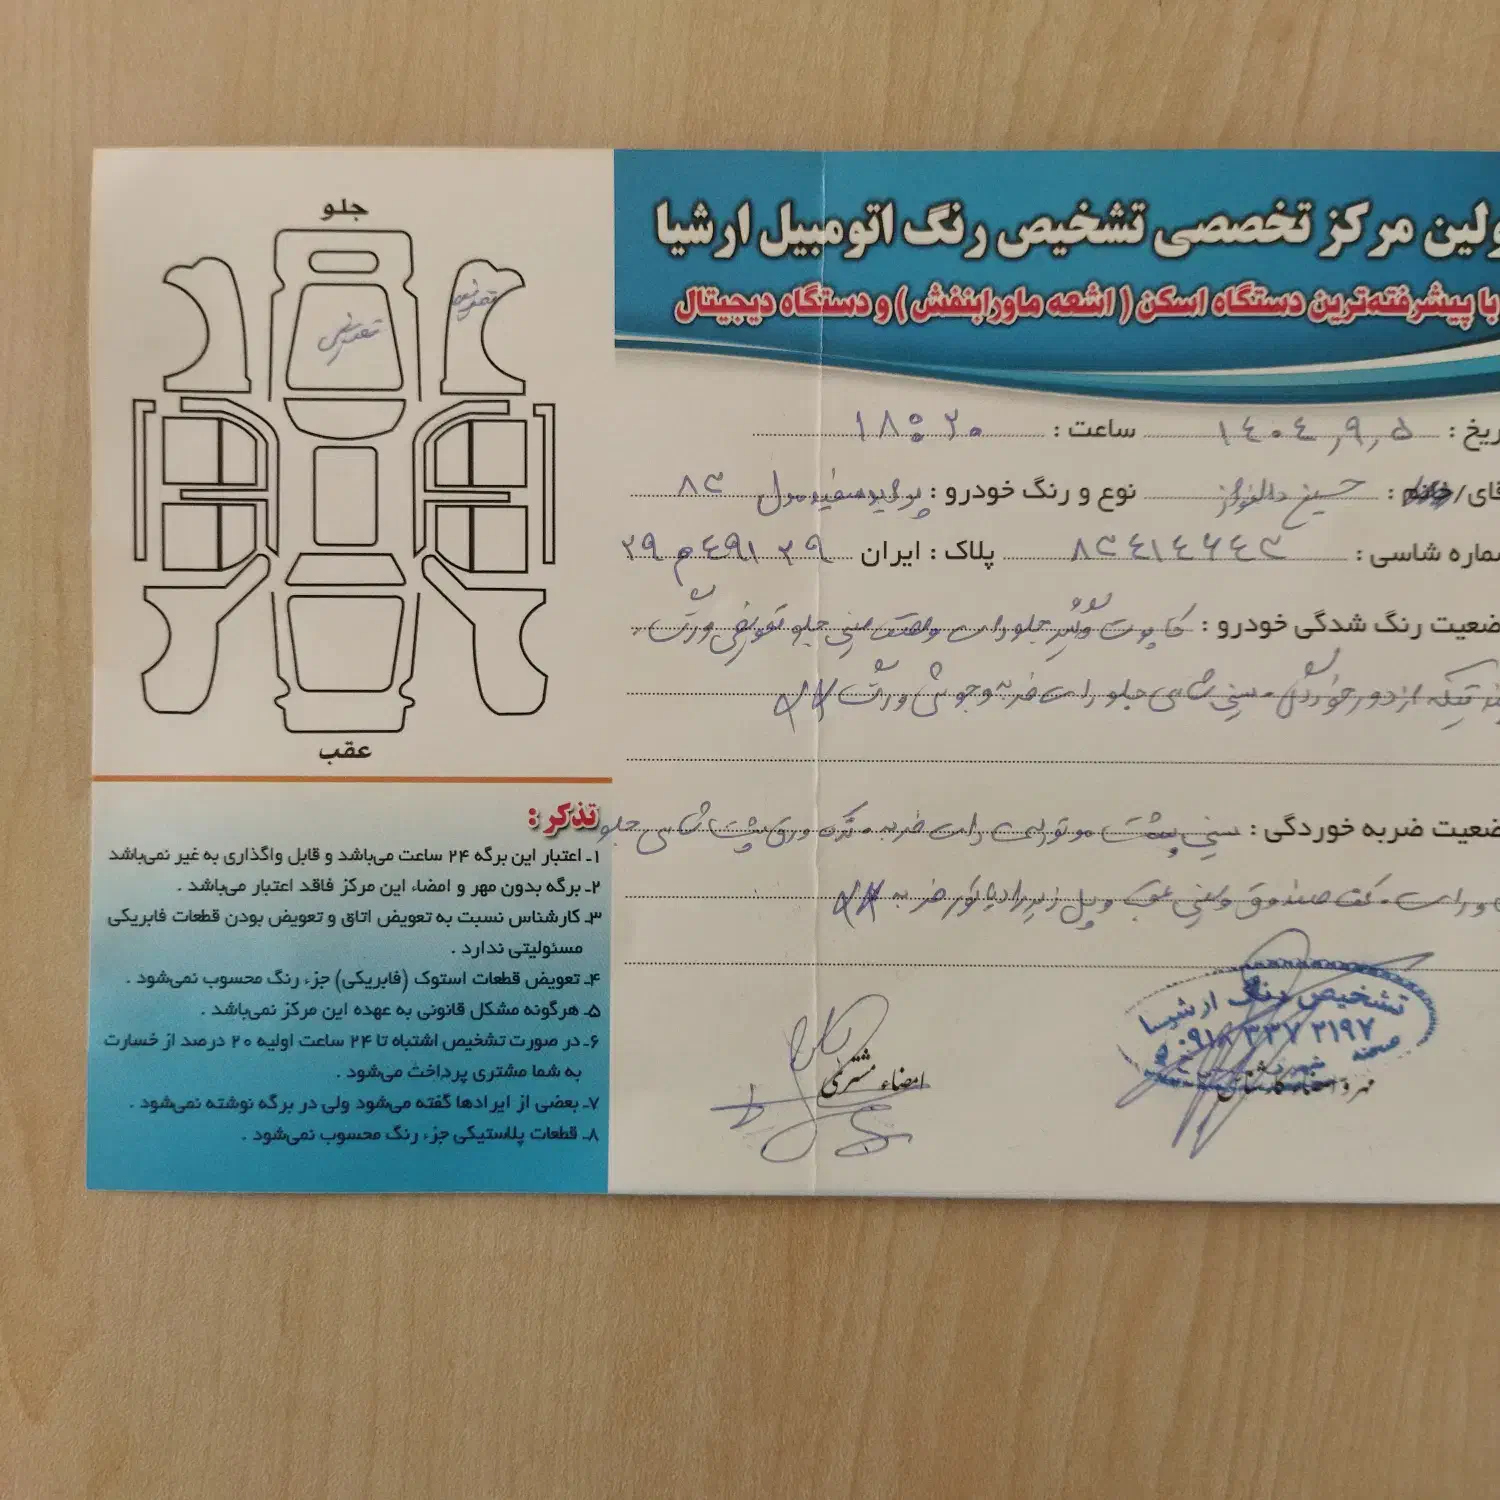 ولین مرکز تخصصی تشخیص رنگ اتومبیل ارشیا
با پیشرفته‌ترین دستگاه اسکن ( اشعه ماورابنفش ) و دستگاه دیجیتال
ریخ : ۱۴۰۴,۹,۵ ساعت : ۱۸:۲۰
قای/خانم : حسین نوع و رنگ خودرو : پراید سفید مدل ۸۳
شماره شاسی : ۸۳۴۱۴۶۴۳ پلاک : ایران ۲۹ ۴۹۱ م ۲۹
ضعیت رنگ شدگی خودرو : کاپوت و گلگیر جلو راست و قسمت سینی جلو تعویض و رنگ
از دور خوردگی . سینی شاسی جلو راست ضربه و جوش و رنگ //
ضعیت ضربه خوردگی : سینی پشت موتور راست ضربه . شاسی جلو
و راست . کف صندوق و سینی عقب و پل زیر رادیاتور ضربه //
تشخیص رنگ ارشیا
۰۹۱۸ ۳۳۷ ۲۱۹۷
صحنه
مهر و امضاء کارشناس
امضاء مشتری
جلو
تعویض
تعویض
عقب
تذکر :
۱ـ اعتبار این برگه ۲۴ ساعت می‌باشد و قابل واگذاری به غیر نمی‌باشد
۲ـ برگه بدون مهر و امضاء این مرکز فاقد اعتبار می‌باشد .
۳ـ کارشناس نسبت به تعویض اتاق و تعویض بودن قطعات فابریکی
مسئولیتی ندارد .
۴ـ تعویض قطعات استوک (فابریکی) جزء رنگ محسوب نمی‌شود .
۵ـ هرگونه مشکل قانونی به عهده این مرکز نمی‌باشد .
۶ـ در صورت تشخیص اشتباه تا ۲۴ ساعت اولیه ۲۰ درصد از خسارت
به شما مشتری پرداخت می‌شود .
۷ـ بعضی از ایرادها گفته می‌شود ولی در برگه نوشته نمی‌شود .
۸ـ قطعات پلاستیکی جزء رنگ محسوب نمی‌شود .